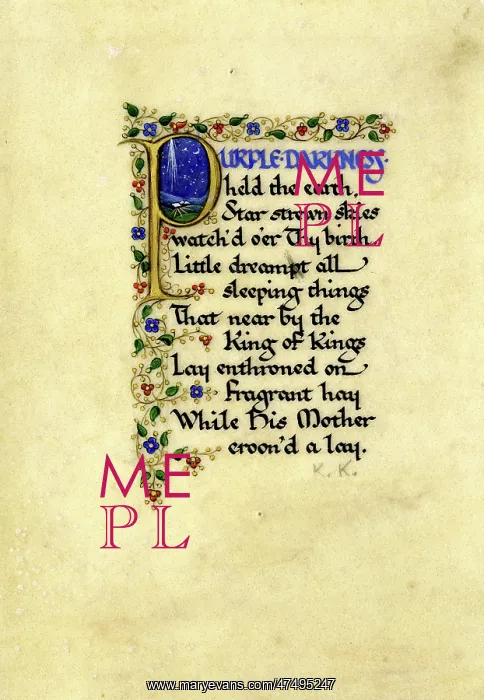 PURPLE·DARKNESS·
held the earth,
Star strewn skies
watch'd o'er Thy birth
Little dreampt all
sleeping things
That near by the
King of Kings
Lay enthroned on
Fragrant hay
While His Mother
croon'd a lay.
K. K.
ME
PL
ME
PL
www.maryevans.com/47495247